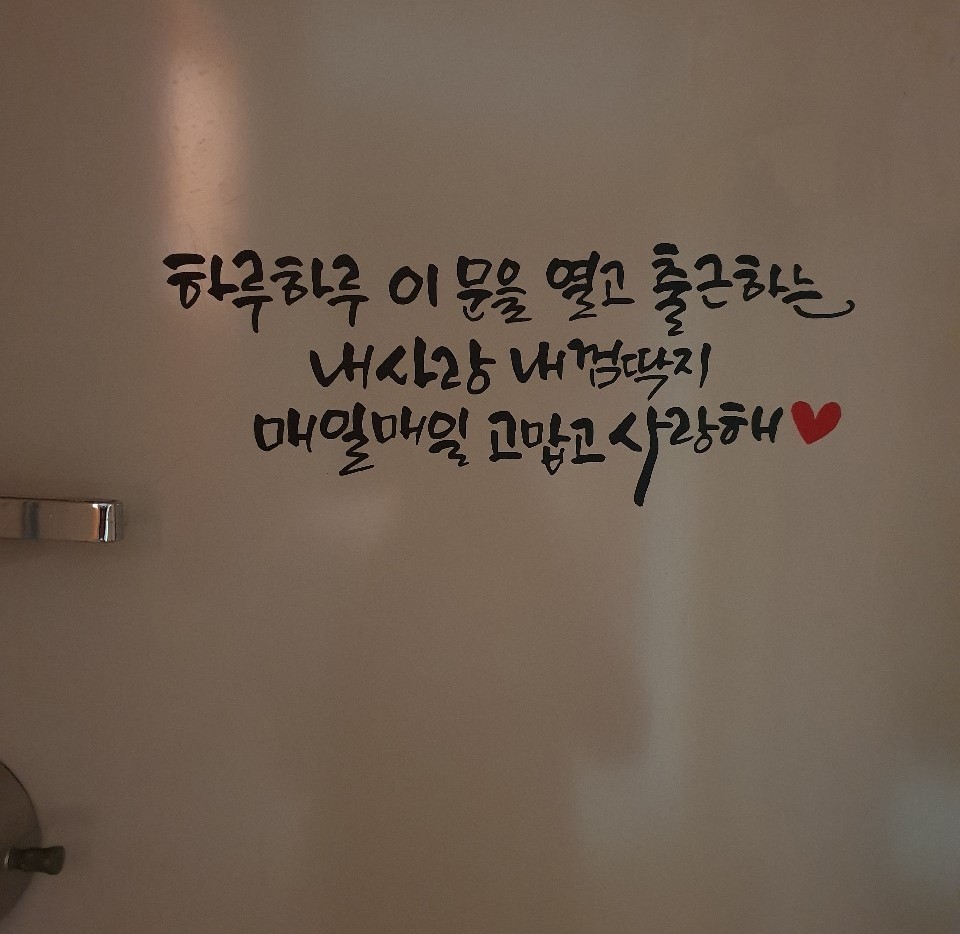 하루하루 이 문을 열고 출근하는
내사랑 내껌딱지
매일매일 고맙고 사랑해